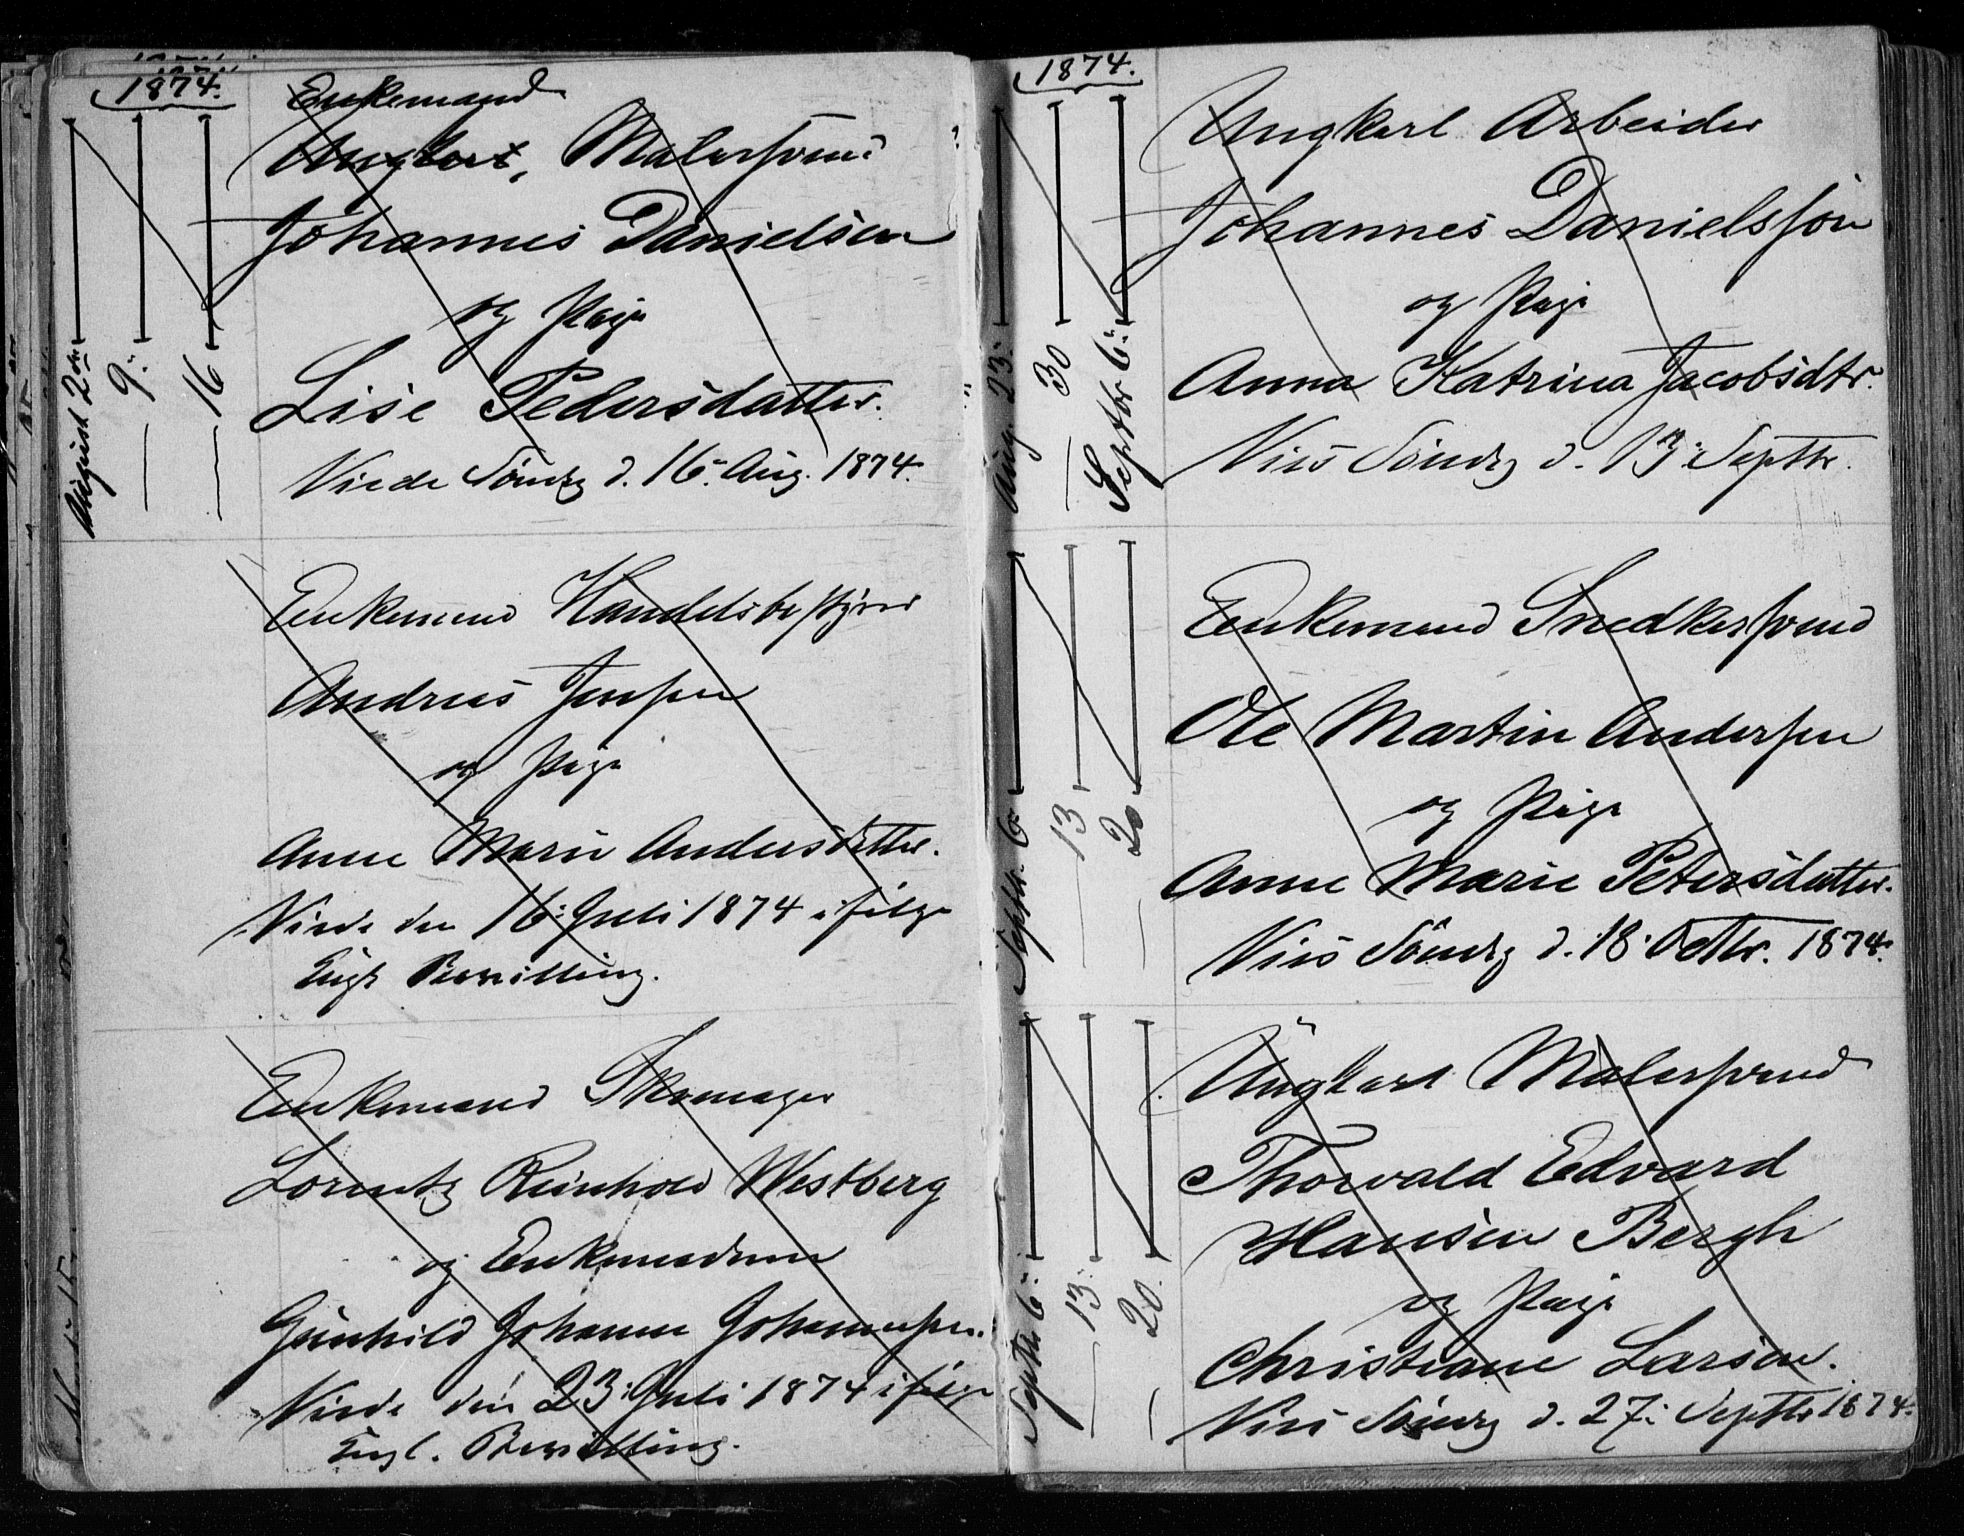 1874.
Enkemand
Ungkarl, Malersvend
Johannes Danielsen
og Pige
Lise Pedersdatter.
Viede Söndg d. 16. Aug. 1874.
August 2den
— 9.
— 16
Enkemand Handelsbestyrer
Andreas Jensen
og Pige
Anne Marie Andersdatter.
Viede den 16. Juli 1874 ifölge
Kngl. Bevilling.
Enkemand Skomager
Lorentz Reinhold Westberg
og Enkemadame
Gunhild Johanne Johannessen.
Viede den 23. Juli 1874 ifölge
Kngl. Bevilling.
1874.
Ungkarl Arbeider
Johannes Danielsson
og Pige
Anna Katrina Jacobsdtr.
Vies Söndg d. 13. Septbr.
Aug. 23.
— 30
Septbr 6.
Enkemand Snedkersvend
Ole Martin Andersen
og Pige
Anne Marie Petersdatter.
Vies Söndg d. 18. Octbr. 1874.
Septbr. 6
— 13
— 20
Ungkarl Malersvend
Thorvald Edvard
Hansen Bergh
og Pige
Christiane Larsen.
Vies Söndg d. 27. Septbr 1874.
Septbr 6.
— 13.
— 20.